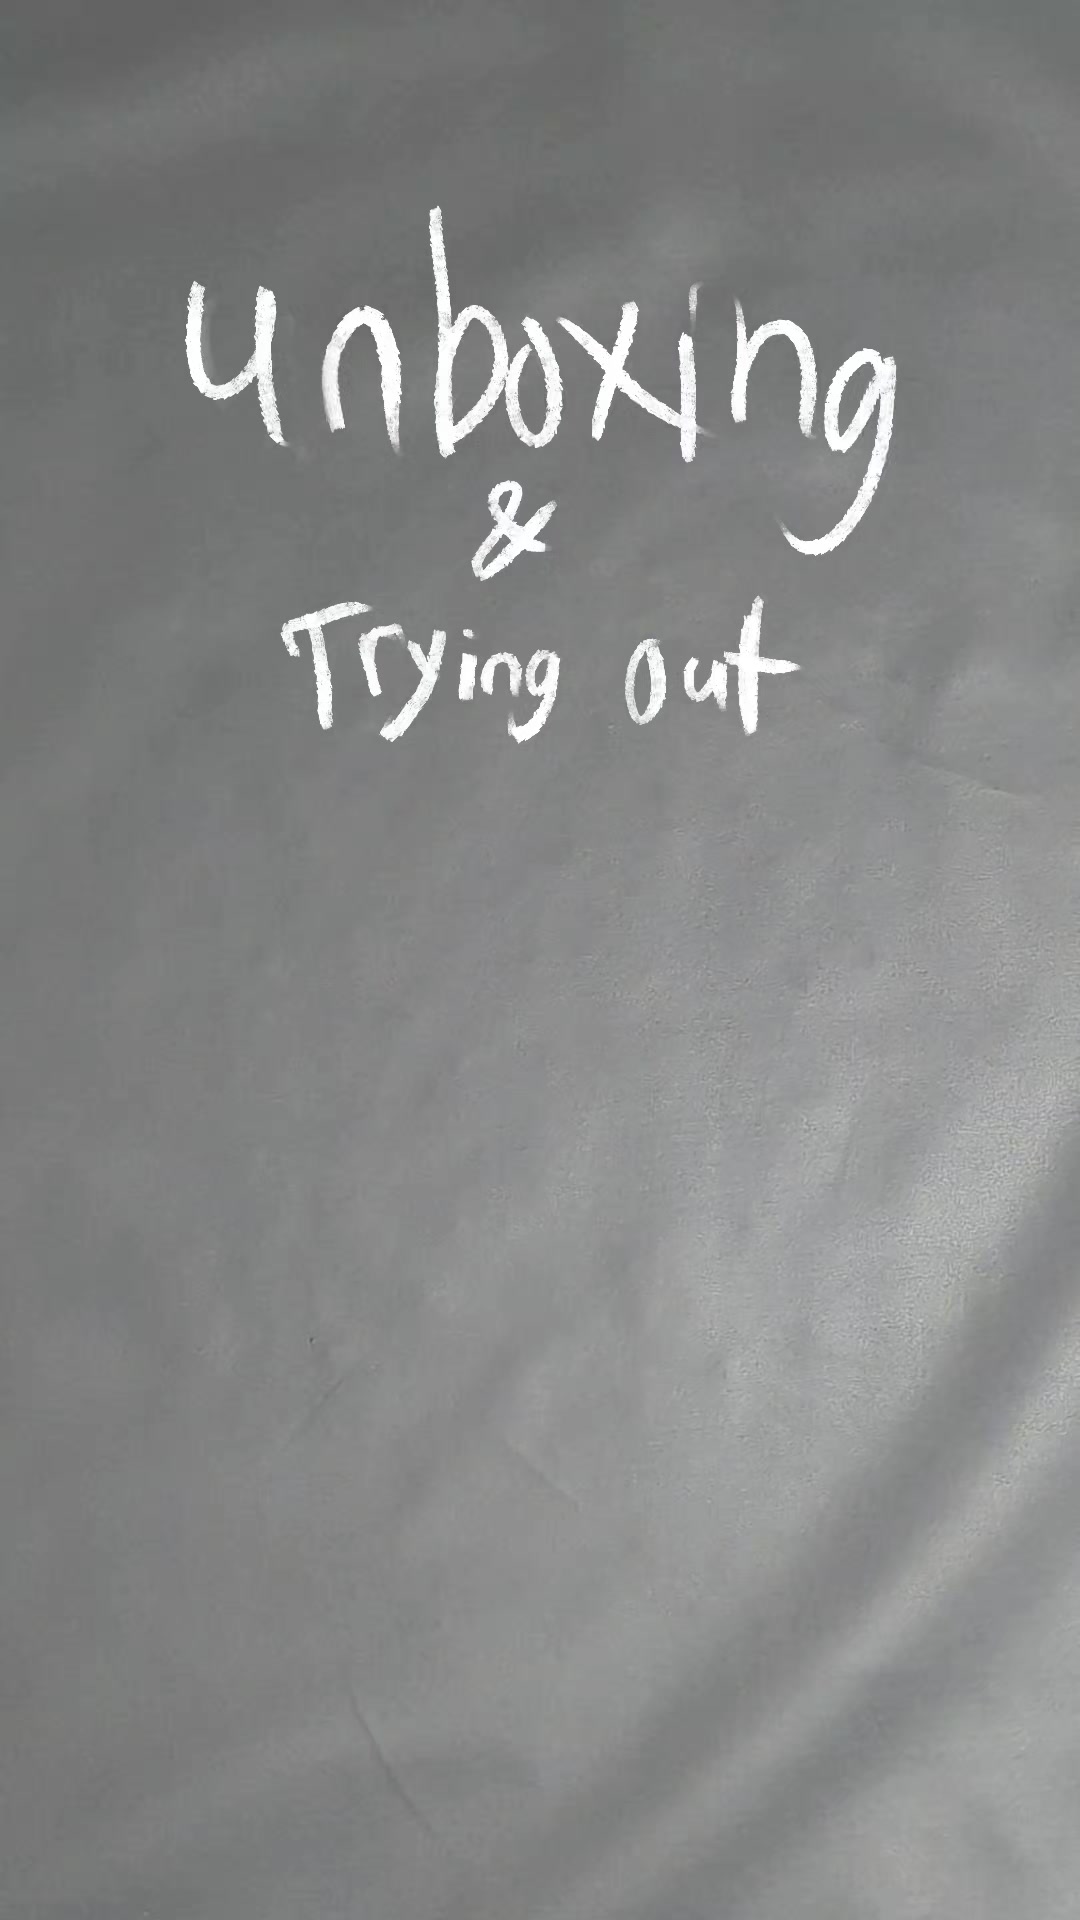 unboxing
&
Trying out